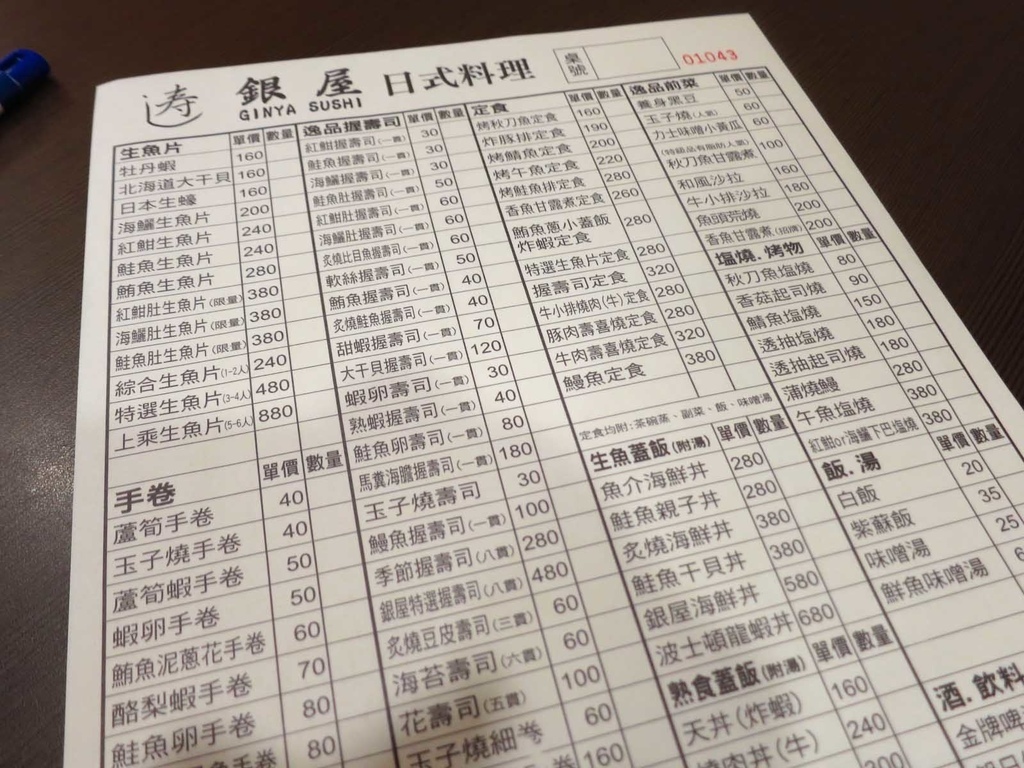 銀屋 日式料理
GINYA SUSHI
桌號
01043
生魚片 單價 數量
牡丹蝦 160
北海道大干貝 160
日本生蠔 160
海鱺生魚片 200
紅魽生魚片 240
鮭魚生魚片 240
鮪魚生魚片 280
紅魽肚生魚片(限量) 380
海鱺肚生魚片(限量) 380
鮭魚肚生魚片(限量) 380
綜合生魚片(1-2人) 240
特選生魚片(3-4人) 480
上乘生魚片(5-6人) 880
手卷 單價 數量
蘆筍手卷 40
玉子燒手卷 40
蘆筍蝦手卷 50
蝦卵手卷 50
鮪魚泥蔥花手卷 60
酪梨蝦手卷 70
鮭魚卵手卷 80
魚手卷 80
逸品握壽司 單價 數量
紅魽握壽司(一貫) 30
鮭魚握壽司(一貫) 30
海鱺握壽司(一貫) 30
鮭魚肚握壽司(一貫) 50
紅魽肚握壽司(一貫) 60
海鱺肚握壽司(一貫) 60
炙燒比目魚握壽司(一貫) 60
軟絲握壽司(一貫) 50
鮪魚握壽司(一貫) 40
炙燒鮭魚握壽司(一貫) 40
甜蝦握壽司(一貫) 70
大干貝握壽司(一貫) 120
蝦卵壽司(一貫) 30
熟蝦握壽司(一貫) 40
鮭魚卵壽司(一貫) 80
馬糞海膽握壽司(一貫) 180
玉子燒壽司 30
鰻魚握壽司(一貫) 100
季節握壽司(八貫) 280
銀屋特選握壽司(八貫) 480
炙燒豆皮壽司(三貫) 60
海苔壽司(六貫) 60
花壽司(五貫) 100
玉子燒細卷 60
160
定食 單價 數量
烤秋刀魚定食 160
炸豚排定食 190
烤鯖魚定食 200
烤午魚定食 220
烤鮭魚排定食 280
香魚甘露煮定食 260
鮪魚蔥小蓋飯
炸蝦定食 280
特選生魚片定食 280
握壽司定食 320
牛小排燒肉(牛)定食 280
豚肉壽喜燒定食 280
牛肉壽喜燒定食 320
鰻魚定食 380
定食均附:茶碗蒸、副菜、飯、味噌湯
生魚蓋飯(附湯) 單價 數量
魚介海鮮丼 280
鮭魚親子丼 280
炙燒海鮮丼 380
鮭魚干貝丼 380
銀屋海鮮丼 580
波士頓龍蝦丼 680
熟食蓋飯(附湯) 單價 數量
天丼(炸蝦) 160
燒肉丼(牛) 240
逸品前菜 單價 數量
養身黑豆 50
玉子燒(人氣) 60
力士味噌小黃瓜 60
秋刀魚甘露煮 100
和風沙拉 160
牛小排沙拉 180
魚頭荒燒 200
香魚甘露煮(招牌) 200
塩燒.烤物 單價 數量
秋刀魚塩燒 80
香菇起司燒 90
鯖魚塩燒 150
透抽塩燒 180
透抽起司燒 180
蒲燒鰻 280
午魚塩燒 380
紅魽or海鱺下巴塩燒 380
飯.湯 單價 數量
白飯 20
紫蘇飯 35
味噌湯 25
鮮魚味噌湯 6
酒.飲料
金牌啤